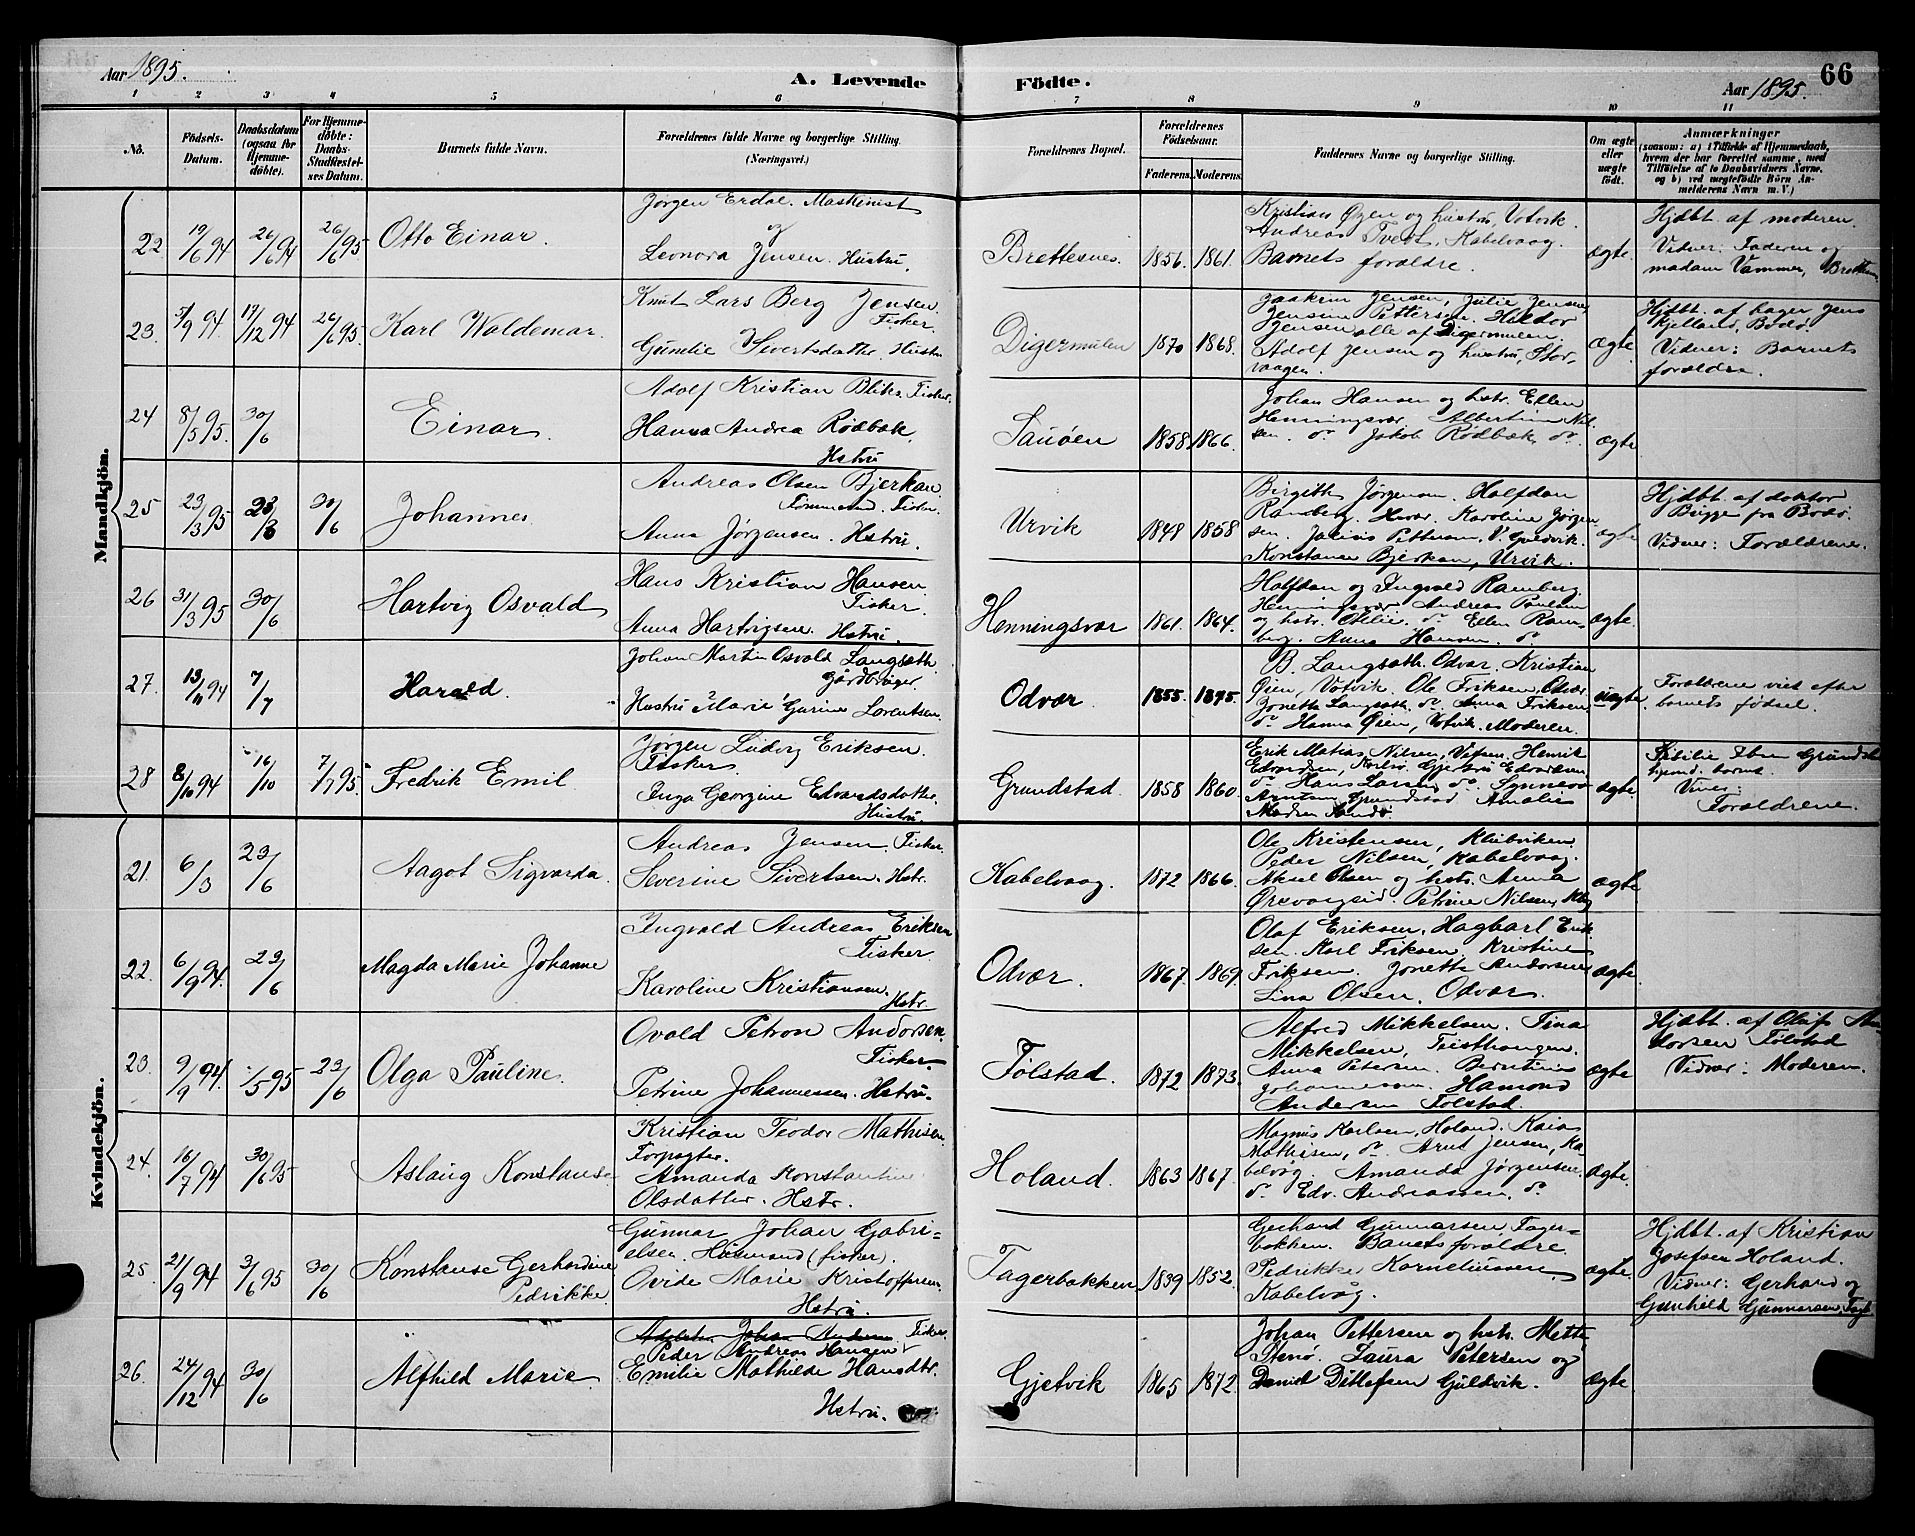 Aar 1895.
A. Levende
Fødte.
Aar 1895.
66
1 2 3 4 5 6 7 8 9 10 11
No.
Fødsels-
Datum.
Daabsdatum
(ogsaa for
Hjemme-
døbte).
For Hjemme-
døbte:
Daabs-
Stadfæstel-
ses Datum.
Barnets fulde Navn.
Forældrenes fulde Navne og borgerlige Stilling.
(Næringsvei.)
Forældrenes Bopæl.
Forældrenes
Fødselsaar.
Faderens. Moderens.
Faddernes Navne og borgerlige Stilling.
Om ægte
eller
uægte
født.
Anmærkninger
(saasom: a) i Tilfælde af Hjemmedaab,
hvem der har forrettet samme, med
Tilføielse af to Daabsvidners Navne.
og b) ved uægtefødte Børn An-
melderens Navn m. V.)
Mandkjøn.
22 19/6 94 26/6 94 26/6 95 Otto Einar.
Jørgen Erdal. Maskinist
og
Leonora Jensen. Hustru.
Brettesnes. 1856. 1861.
Kristian Øyen og hustru, Votvik.
Andreas Tvedt, Kabelvaag.
Barnets forældre.
ægte.
Hjdbt. af moderen.
Vidner: Faderen og
madam Vammer,
23. 5/9 94 17/12 94 26/6 95 Karl Waldemar.
Knut Lars Berg Jensen.
Fisker.
Gunelie Sivertsdatter. Hustru
Digermulen 1870 1868.
Jensen, Julie Jensen
Jensine Pettersen. Haldor
Jensen alle af Digermulen
Adolf Jensen og hustru, Stor-
vaagen.
ægte.
Hjdbt. af Jens
Kjelland, Bodø.
Vidner: Barnets
forældre.
24 8/5 95. 30/6 Einar.
Adolf Kristian Bliks. Fisker.
Hanna Andrea Rødbak,
Hstru
Sauøen 1858 1866.
Johan Hansen og hstr. Ellen
Henningsvær. Albertine Nil-
sen. do Jakob Rødbak do
ægte
25 23/3 95 23/3 30/6 Johannes
Andreas Olsen Bjerkan.
Tømmermd. Fisker.
Anna Jørgensen. Hstru.
Urvik 1848 1858
Birgitte Jørgensen. Halfdan
Ramberg. Hvær. Karoline Jørgen
sen. Julius Pettersen, V. Guldvik.
Konstanse Bjerkan, Urvik.
ægte
Hjdbt. af doktor
fra Bodø.
Vidner: Forældrene.
26 31/3 95 30/6 Hartvig Osvald
Hans Kristian Hansen.
Fisker.
Anna Hartvigsen. Hstru.
Henningsvær 1861. 1864.
Halfdan og Ingvald Ramberg.
Henningsvær Andreas Paulsen
og hstr. Otelie. do Ellen Ram-
berg. Anna Hansen. do
ægte.
27. 13/11 94 7/7 Harald.
Johan Martin Osvald Langsæth.
Gårdbruger.
Hustru Marie Gurine Lorentsen.
Odvær. 1855. 1895.
B. Langsæth. Odvær. Kristian
Øien, Votvik. Ole Eriksen, Odvær.
Jonetta Langsæth. do Anna Eriksen.
do Hanna Øien, Votvik. Moderen.
uægte
Forældrene viet efter
barnets fødsel.
28 8/10 94 16/10 7/7 95 Fredrik Emil
Jørgen Ludvig Eriksen.
Fisker.
Inga Georgine Edvardsdatter.
Hustru.
Grundstad. 1858 1860.
Erik Matias Nilsen, Henrik
Edvardsen, Gjertru Edvardsen
do Hans Larsen do Synneva
Arntsen Grundstad Amalie
Madsen Sandø.
ægte.
Forældrene.
Kvindekjøn.
21. 6/3 23/6 Aagot Sigvarda.
Andreas Jensen. Fisker.
Severine Sivertsen. Hstr.
Kabelvaag. 1872 1866.
Ole Kristensen, Klubviken
Peder Nilsen, Kabelvaag.
Aksel Olsen og hstr. Anna
Ørsvaagsid. Petrine Nilsen, Kbg
ægte
22. 6/9 94. 23/6 Magda Marie Johanne
Ingvald Andreas Eriksen
Fisker.
Karoline Kristiansen.
Hstr.
Odvær. 1867. 1869.
Olaf Eriksen, Hagbart Erik-
sen. Karl Eriksen, Kristine
Eriksen. Jonetta Andorsen,
Lina Olsen, Odvær.
ægte
23. 9/9 94. 1/5 95 23/6 Olga Pauline.
Ovald Petron Andorsen.
Fisker.
Petrine Johannessen. Hstru.
Følstad. 1872 1873.
Alfred Mikkelsen. Tina
Mikkelsen, Teisthaugen.
Anna Petersen. Berntine
Johannessen. Hamond
Andersen Følstad.
ægte
Hjdbt. af Oluf An-
dorsen Følstad
Vidner: Moderen.
24. 16/7 94 30/6 95 Aslaug Konstanse
Kristian Teodor Mathisen.
Forpagter.
Amanda Konstantine
Olsdatter. Hstr.
Holand. 1863 1867.
Magnus Karlsen, Holand. Kaia
Mathisen, do. Arnt Jensen, Ka-
belvåg. Amanda Jørgensen.
do. Edv. Andreassen, do.
ægte.
25. 21/9 94 3/6 95 30/6 Konstanse Gerhardine
Pedrikke.
Gunnar Johan Gabri-
elsen. Husmand (fisker).
Ovide Marie Kristoffersen.
Hstru.
Fagerbakken 1839 1852.
Gerhard Gunnarsen, Fager-
bakken. Barnets forældre.
Pedrikke Korneliussen,
Kabelvåg.
ægte.
Hjdbt. af Kristian
Josefsen Holand.
Vidner: Gerhard og
Gunhild Gunnarsen, Fagb.
26. 24/12 94 30/6 Alfhild Marie
Johan Andersen. Fisker.
Peder Andreas Hansen
Emilie Mathilde Hansdtr.
Hstru.
Gjetvik 1865 1872.
Johan Pettersen og hstr. Mette,
Stenø. Laura Petersen og
Daniel Ditlefsen Guldvik.
ægte.